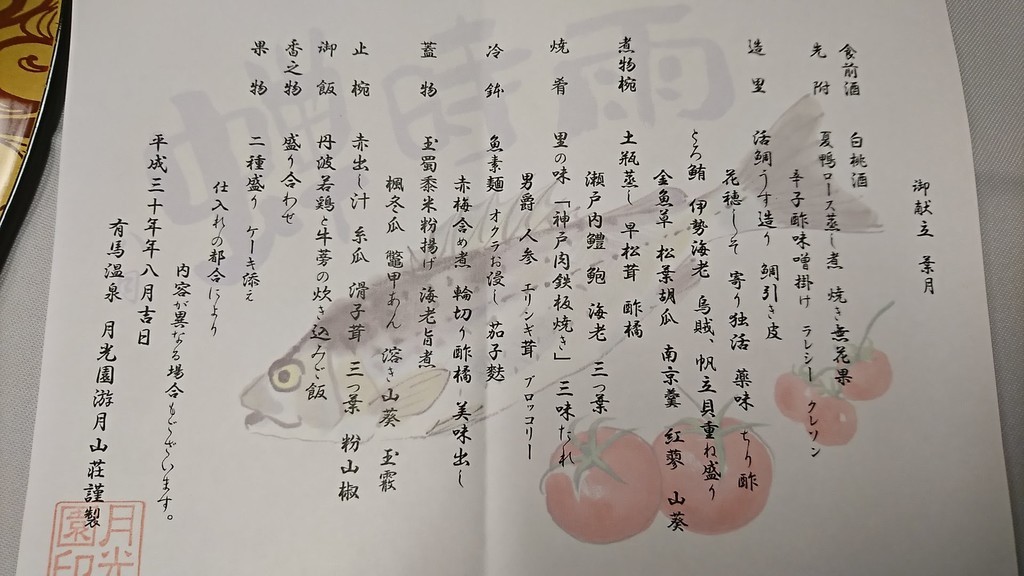 御献立 葉月
食前酒 白桃酒
先附 夏鴨ロース蒸し煮 焼き無花果
辛子酢味噌掛け ラレシー クレソン
造里 活鯛うす造り 鯛引き皮
花穂しそ 寄り独活 薬味 ちり酢
とろ鮪 伊勢海老 烏賊、帆立貝重ね盛り
金魚草 松葉胡瓜 南京羹 紅蓼 山葵
煮物椀 土瓶蒸し 早松茸 酢橘
瀬戸内鱧 鮑 海老 三つ葉
焼肴 里の味 「神戸肉鉄板焼き」 三味だれ
男爵 人参 エリンギ茸 ブロッコリー
冷鉢 魚素麺 オクラお浸し 茄子麩
赤梅含め煮 輪切り酢橘 美味出し
蓋物 玉蜀黍米粉揚げ 海老旨煮
楓冬瓜 鼈甲あん 溶き山葵 玉霰
止椀 赤出し汁 糸瓜 滑子茸 三つ葉 粉山椒
御飯 丹波若鶏と牛蒡の炊き込みご飯
香之物 盛り合わせ
果物 二種盛り ケーキ添え
仕入れの都合により
内容が異なる場合もございます。
平成三十年年八月吉日
有馬温泉 月光園游月山荘謹製
雨時蝉
月光園印